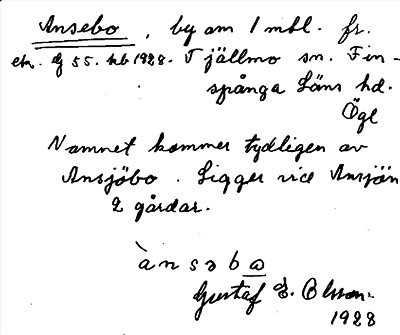 Ansebo, by om 1 mtl. fr.
ek. bl 55. hb 1928. Tjällmo sn. Fin-
spånga Läns hd.
Ögl
Namnet kommer tydligen av
Ansjöbo. Ligger vid Ansjön
2 gårdar.
ànsəbω
Gustaf E. Olsson.
1928